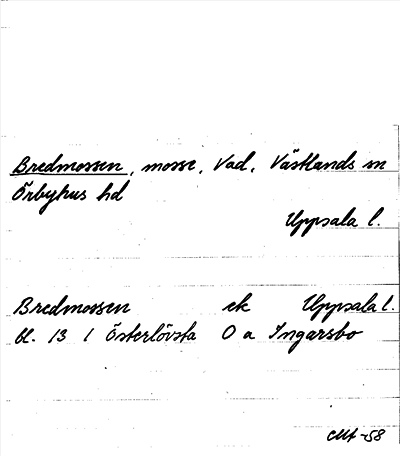 Bredmossen, mosse, Vad, Västlands sn
Örbyhus hd
Uppsala l.
Bredmossen ek Uppsala l.
bl. 13 I Österlövsta O a Ingarsbo
-58